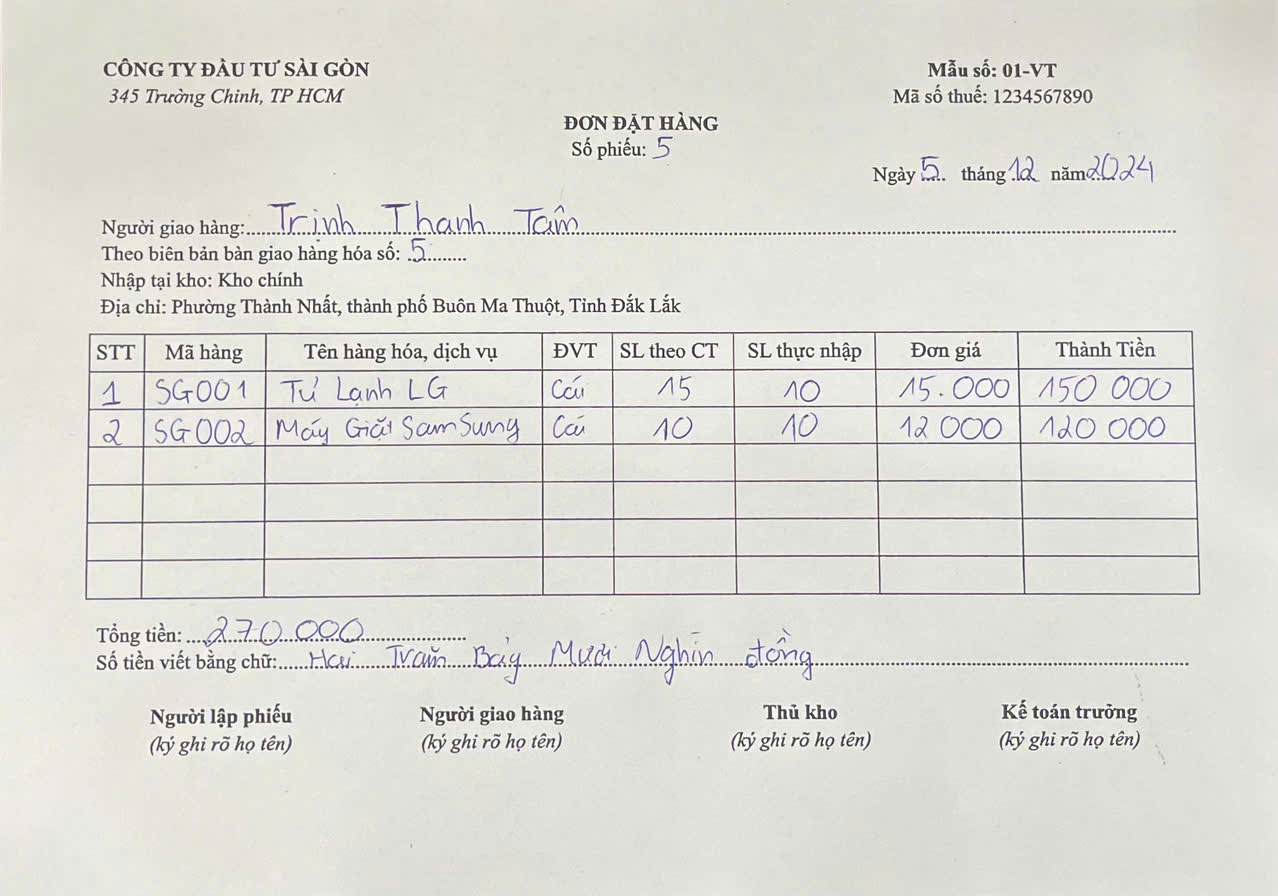 CÔNG TY ĐẦU TƯ SÀI GÒN
345 Trường Chinh, TP HCM
Mẫu số: 01-VT
Mã số thuế: 1234567890
ĐƠN ĐẶT HÀNG
Số phiếu: 5
Ngày 5 tháng 12 năm 2024
Người giao hàng: Trịnh Thanh Tâm
Theo biên bản bàn giao hàng hóa số: 5
Nhập tại kho: Kho chính
Địa chỉ: Phường Thành Nhất, thành phố Buôn Ma Thuột, Tỉnh Đắk Lắk
STT Mã hàng Tên hàng hóa, dịch vụ ĐVT SL theo CT SL thực nhập Đơn giá Thành Tiền
1 SG001 Tủ Lạnh LG Cái 15 10 15.000 150 000
2 SG002 Máy Giặt SamSung Cái 10 10 12 000 120 000
Tổng tiền: 270.000
Số tiền viết bằng chữ: Hai Trăm Bảy Mươi Nghìn đồng
Người lập phiếu Người giao hàng Thủ kho Kế toán trưởng
(ký ghi rõ họ tên) (ký ghi rõ họ tên) (ký ghi rõ họ tên) (ký ghi rõ họ tên)